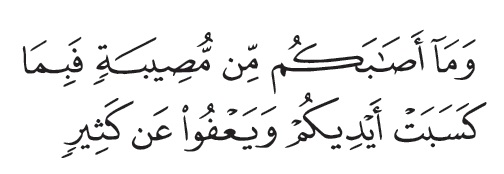 وَمَآ أَصَٰبَكُم مِّن مُّصِيبَةٍ فَبِمَا
كَسَبَتْ أَيْدِيكُمْ وَيَعْفُوا۟ عَن كَثِيرٍ